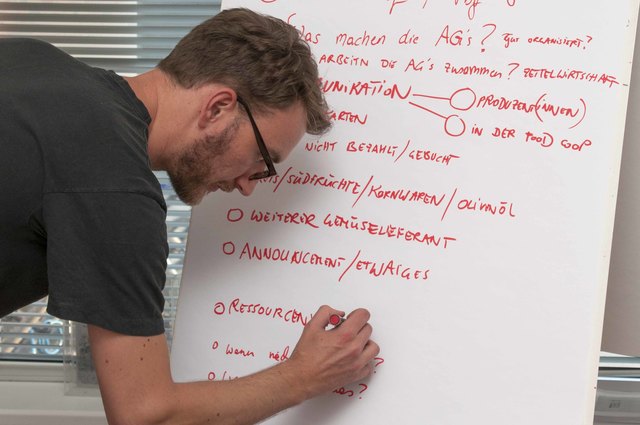 Was machen die AG's? gut organisiert?
ARBEITN DIE AG'S ZUSAMMEN? ZETTELWIRTSCHAFT
UNIKATION PRODUZENT(INNEN)
IN DER FOOD COOP
ARTEN
NICHT BEZAHLT/GEBUCHT
/SÜDFRÜCHTE/KORNWAREN/OLIVNÖL
WEITERER GEMÜSELIEFERANT
ANNOUNCEMENT/ETWAIGES
RESSOURCEN
wann